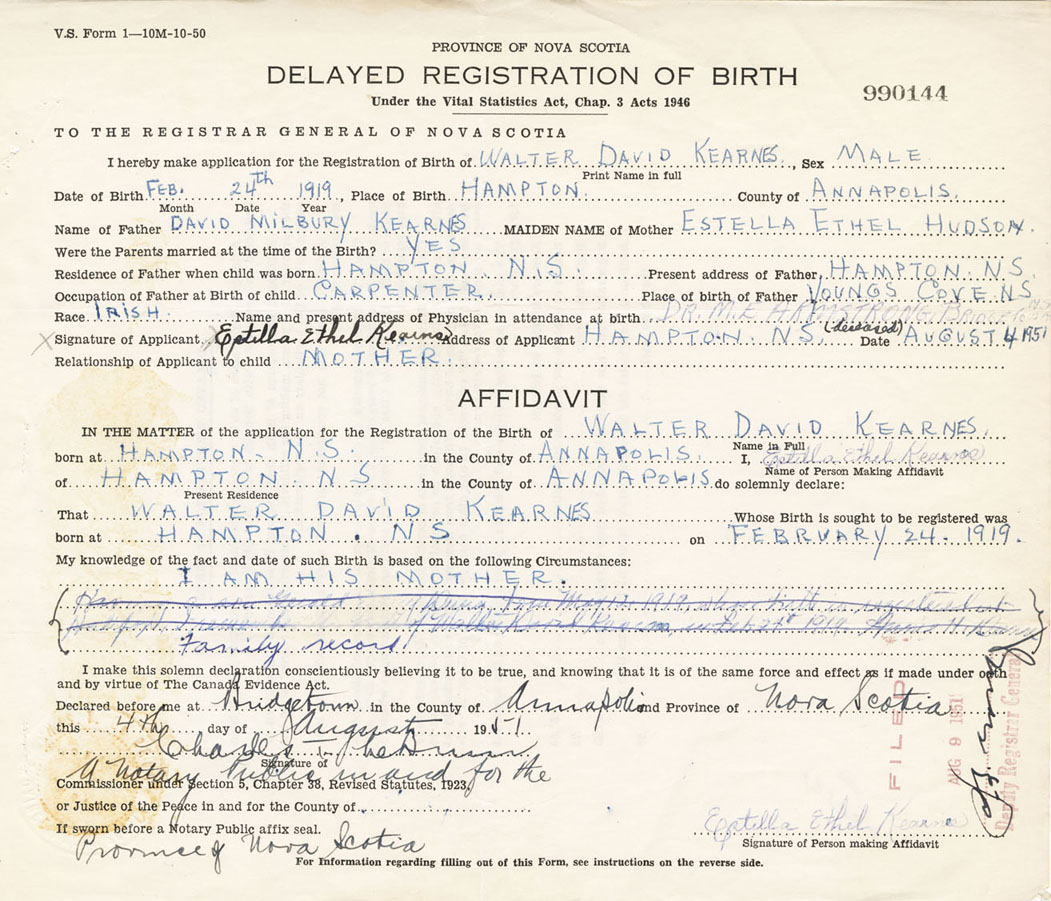 V.S. Form 1—10M-10-50
PROVINCE OF NOVA SCOTIA
DELAYED REGISTRATION OF BIRTH
990144
Under the Vital Statistics Act, Chap. 3 Acts 1946
TO THE REGISTRAR GENERAL OF NOVA SCOTIA
I hereby make application for the Registration of Birth of WALTER DAVID KEARNES, Sex MALE
Print Name in full
Date of Birth FEB. 24th 1919, Place of Birth HAMPTON. County of ANNAPOLIS.
Month Date Year
Name of Father DAVID MILBURY KEARNS MAIDEN NAME of Mother ESTELLA ETHEL HUDSON.
Were the Parents married at the time of the Birth? YES
Residence of Father when child was born HAMPTON N.S. Present address of Father, HAMPTON. N.S.
Occupation of Father at Birth of child CARPENTER. Place of birth of Father YOUNGS COVE N.S
Race IRISH Name and present address of Physician in attendance at birth DR. M.E. ARMSTRONG,
(deceased)
X Signature of Applicant Estella Ethel Kearns Address of Applicant HAMPTON. N.S. Date AUGUST 4 1951
Relationship of Applicant to child MOTHER.
AFFIDAVIT
IN THE MATTER of the application for the Registration of the Birth of WALTER DAVID KEARNES.
Name in Full
born at HAMPTON N.S. in the County of ANNAPOLIS. I, Estella Ethel Kearns
Name of Person Making Affidavit
of HAMPTON NS in the County of ANNAPOLIS do solemnly declare:
Present Residence
That WALTER DAVID KEARNES Whose Birth is sought to be registered was
born at HAMPTON. NS on FEBRUARY 24. 1919.
My knowledge of the fact and date of such Birth is based on the following Circumstances:
I AM HIS MOTHER.
Family record
I make this solemn declaration conscientiously believing it to be true, and knowing that it is of the same force and effect as if made under oath
and by virtue of The Canada Evidence Act.
Declared before me at Bridgetown in the County of Annapolis and Province of Nova Scotia
this 4th day of August 1951
Charles
Signature of
A Notary Public in and for the
Commissioner under Section 5, Chapter 38, Revised Statutes, 1923,
or Justice of the Peace in and for the County of
If sworn before a Notary Public affix seal.
Province of Nova Scotia
Estella Ethel Kearns
Signature of Person making Affidavit
FILED
AUG 9 1951
Deputy Registrar General
For Information regarding filling out of this Form, see instructions on the reverse side.